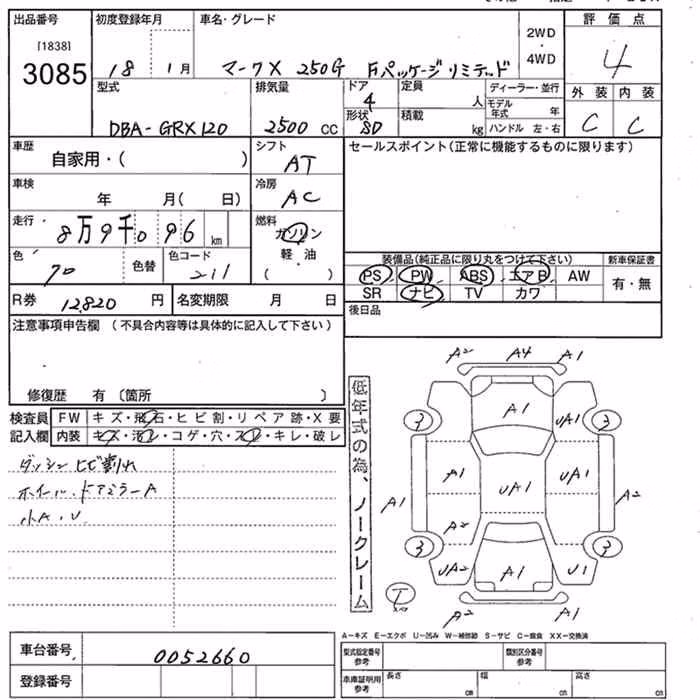 出品番号
[1838]
3085
初度登録年月
18 1月
車名・グレード
マークX 250G Fパッケージリミテッド
2WD
・
4WD
評価点
4
外装 内装
C C
型式
DBA-GRX120
排気量
2500 cc
ドア
4
形状
SD
定員
人
積載
kg
ディーラー・並行
モデル年式 年
ハンドル 左・右
車歴
自家用・( )
シフト
AT
車検
年 月( 日)
冷房
AC
走行
8万9千096 km
燃料
ガソリン
軽・油
( )
色
色替
色コード
211
R券 12,820 円
名変期限 月 日
セールスポイント(正常に機能するものに限ります)
装備品(純正品に限り丸をつけて下さい)
新車保証書
PS PW ABS エアB AW
SR ナビ TV カワ
有・無
後日品
注意事項申告欄 (不具合内容等は具体的に記入して下さい)
修復歴 有〔箇所 〕
検査員記入欄
FW キズ・飛石・ヒビ割・リペア跡・X要
内装 キズ・汚レ・コゲ・穴・スレ・キレ・破レ
ダッシュヒビ割れ
ホイール、ドアミラーA
小A・U
低年式の為、ノークレーム
A2 A4 A1
3 A1 UA1 3
A1 A1 UA1 UA1 A2
A2
3 UA2 A1 U1 3
T
A2 A1
A-キズ E-エクボ U-凹み W-補修跡 S-サビ C-腐食 XX-交換済
車台番号 0052660
登録番号
型式指定番号
参考
類別区分番号
参考
車庫証明用
参考
長さ cm
幅 cm
高さ cm